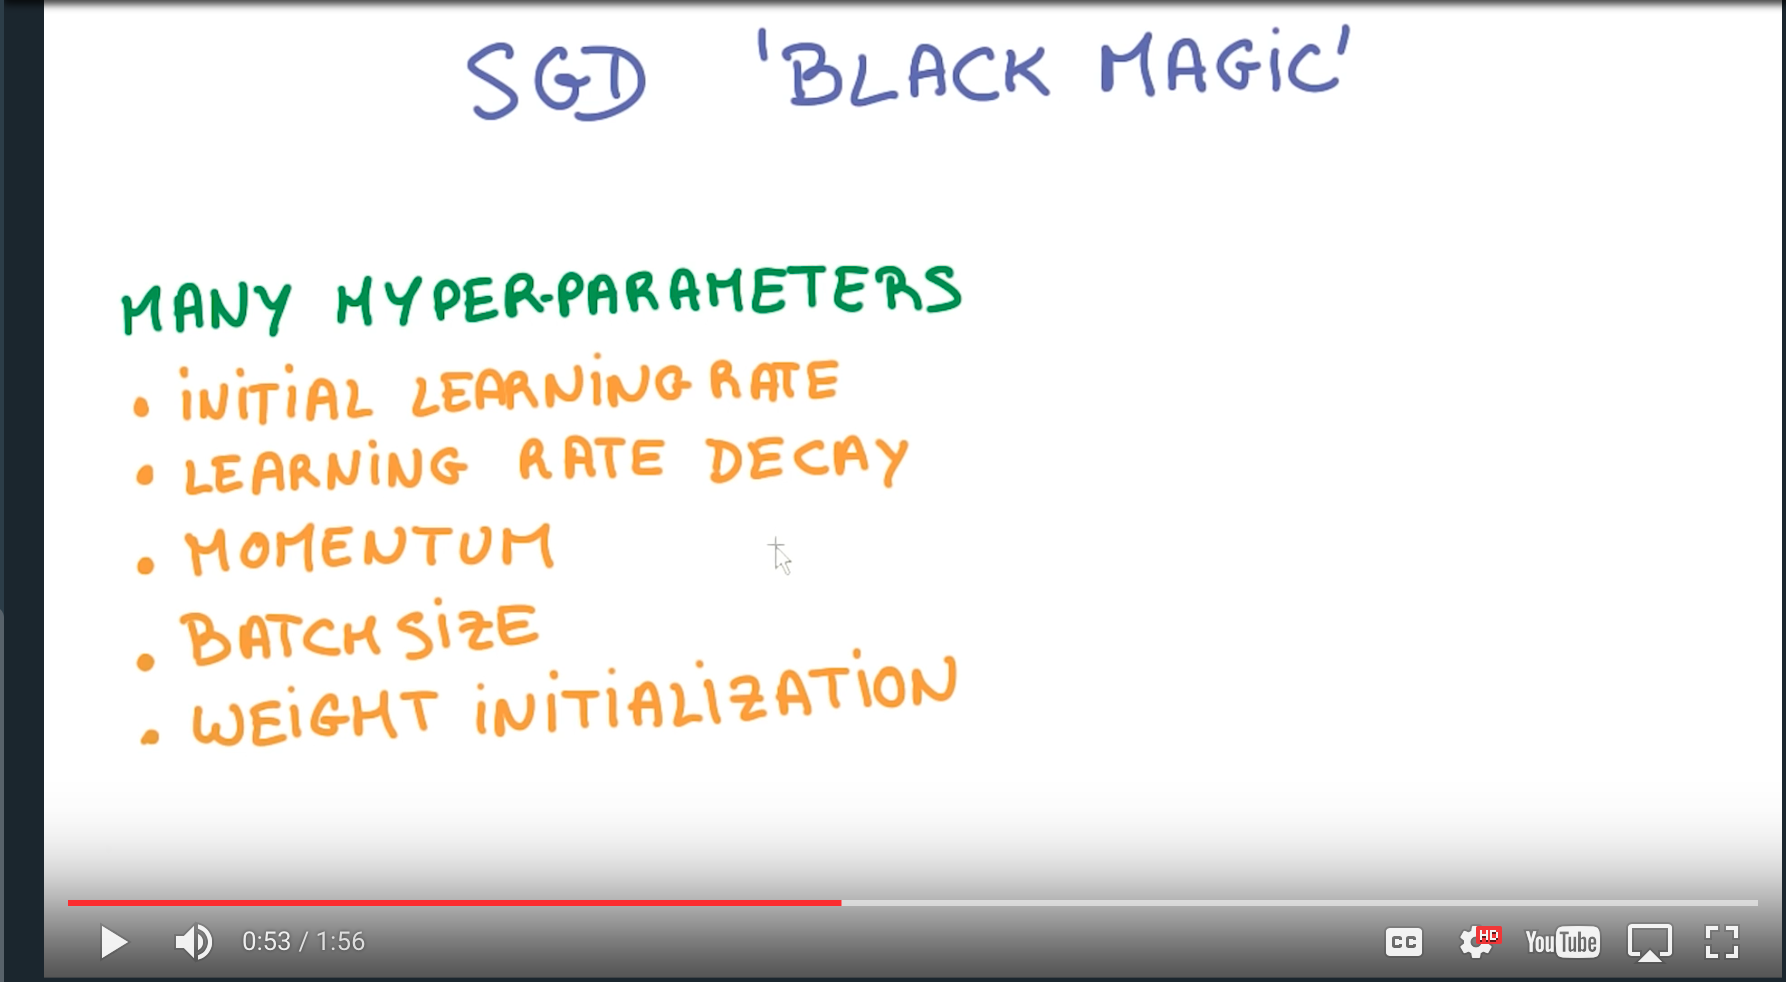 SGD 'BLACK MAGiC'
MANY HYPER-PARAMETERS
• iNiTiAL LEARNiNG RATE
• LEARNiNG RATE DECAY
• MOMENTUM
• BATCH SiZE
• WEiGHT iNiTiALiZATiON
0:53 / 1:56
CC HD YouTube